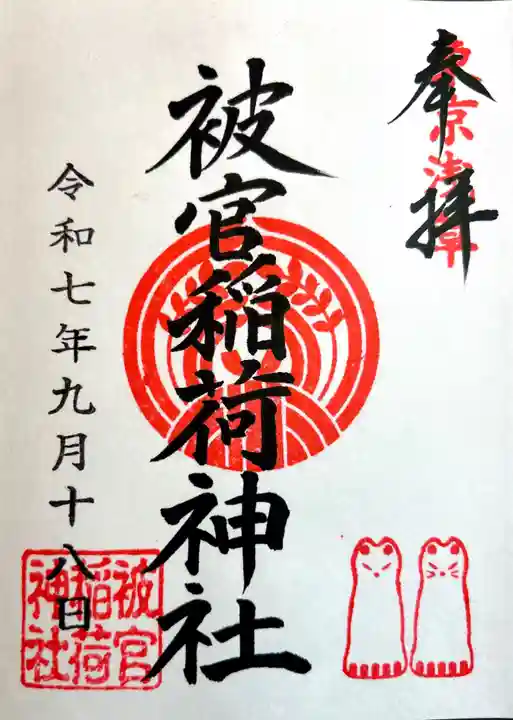 奉拝
東京浅草
被官稲荷神社
令和七年九月十八日
被官
稲荷
神社